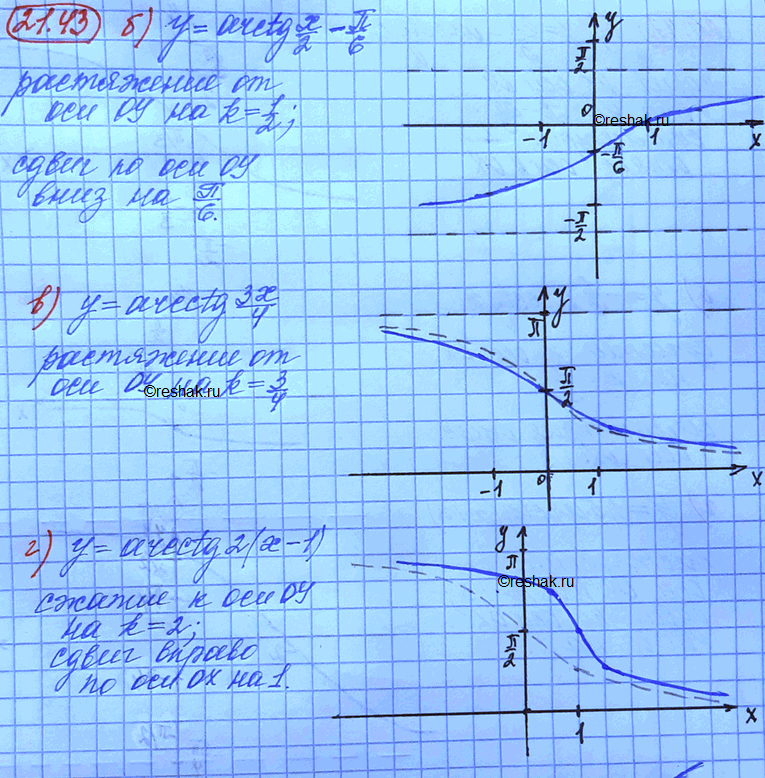 21.43 б) y = arctg x/2 - π/6
растяжение от
оси OY на k = 1/2;
сдвиг по оси OY
вниз на π/6.
y
π/2
0
©reshak.ru
-1
1
x
-π/6
-π/2
в) y = arcctg 3x/4
растяжение от
оси OY на k = 3/4
©reshak.ru
y
π
π/2
-1
0
1
x
г) y = arcctg 2(x-1)
сжатие к оси OY
на k = 2;
сдвиг вправо
по оси OX на 1.
y
π
©reshak.ru
π/2
1
x